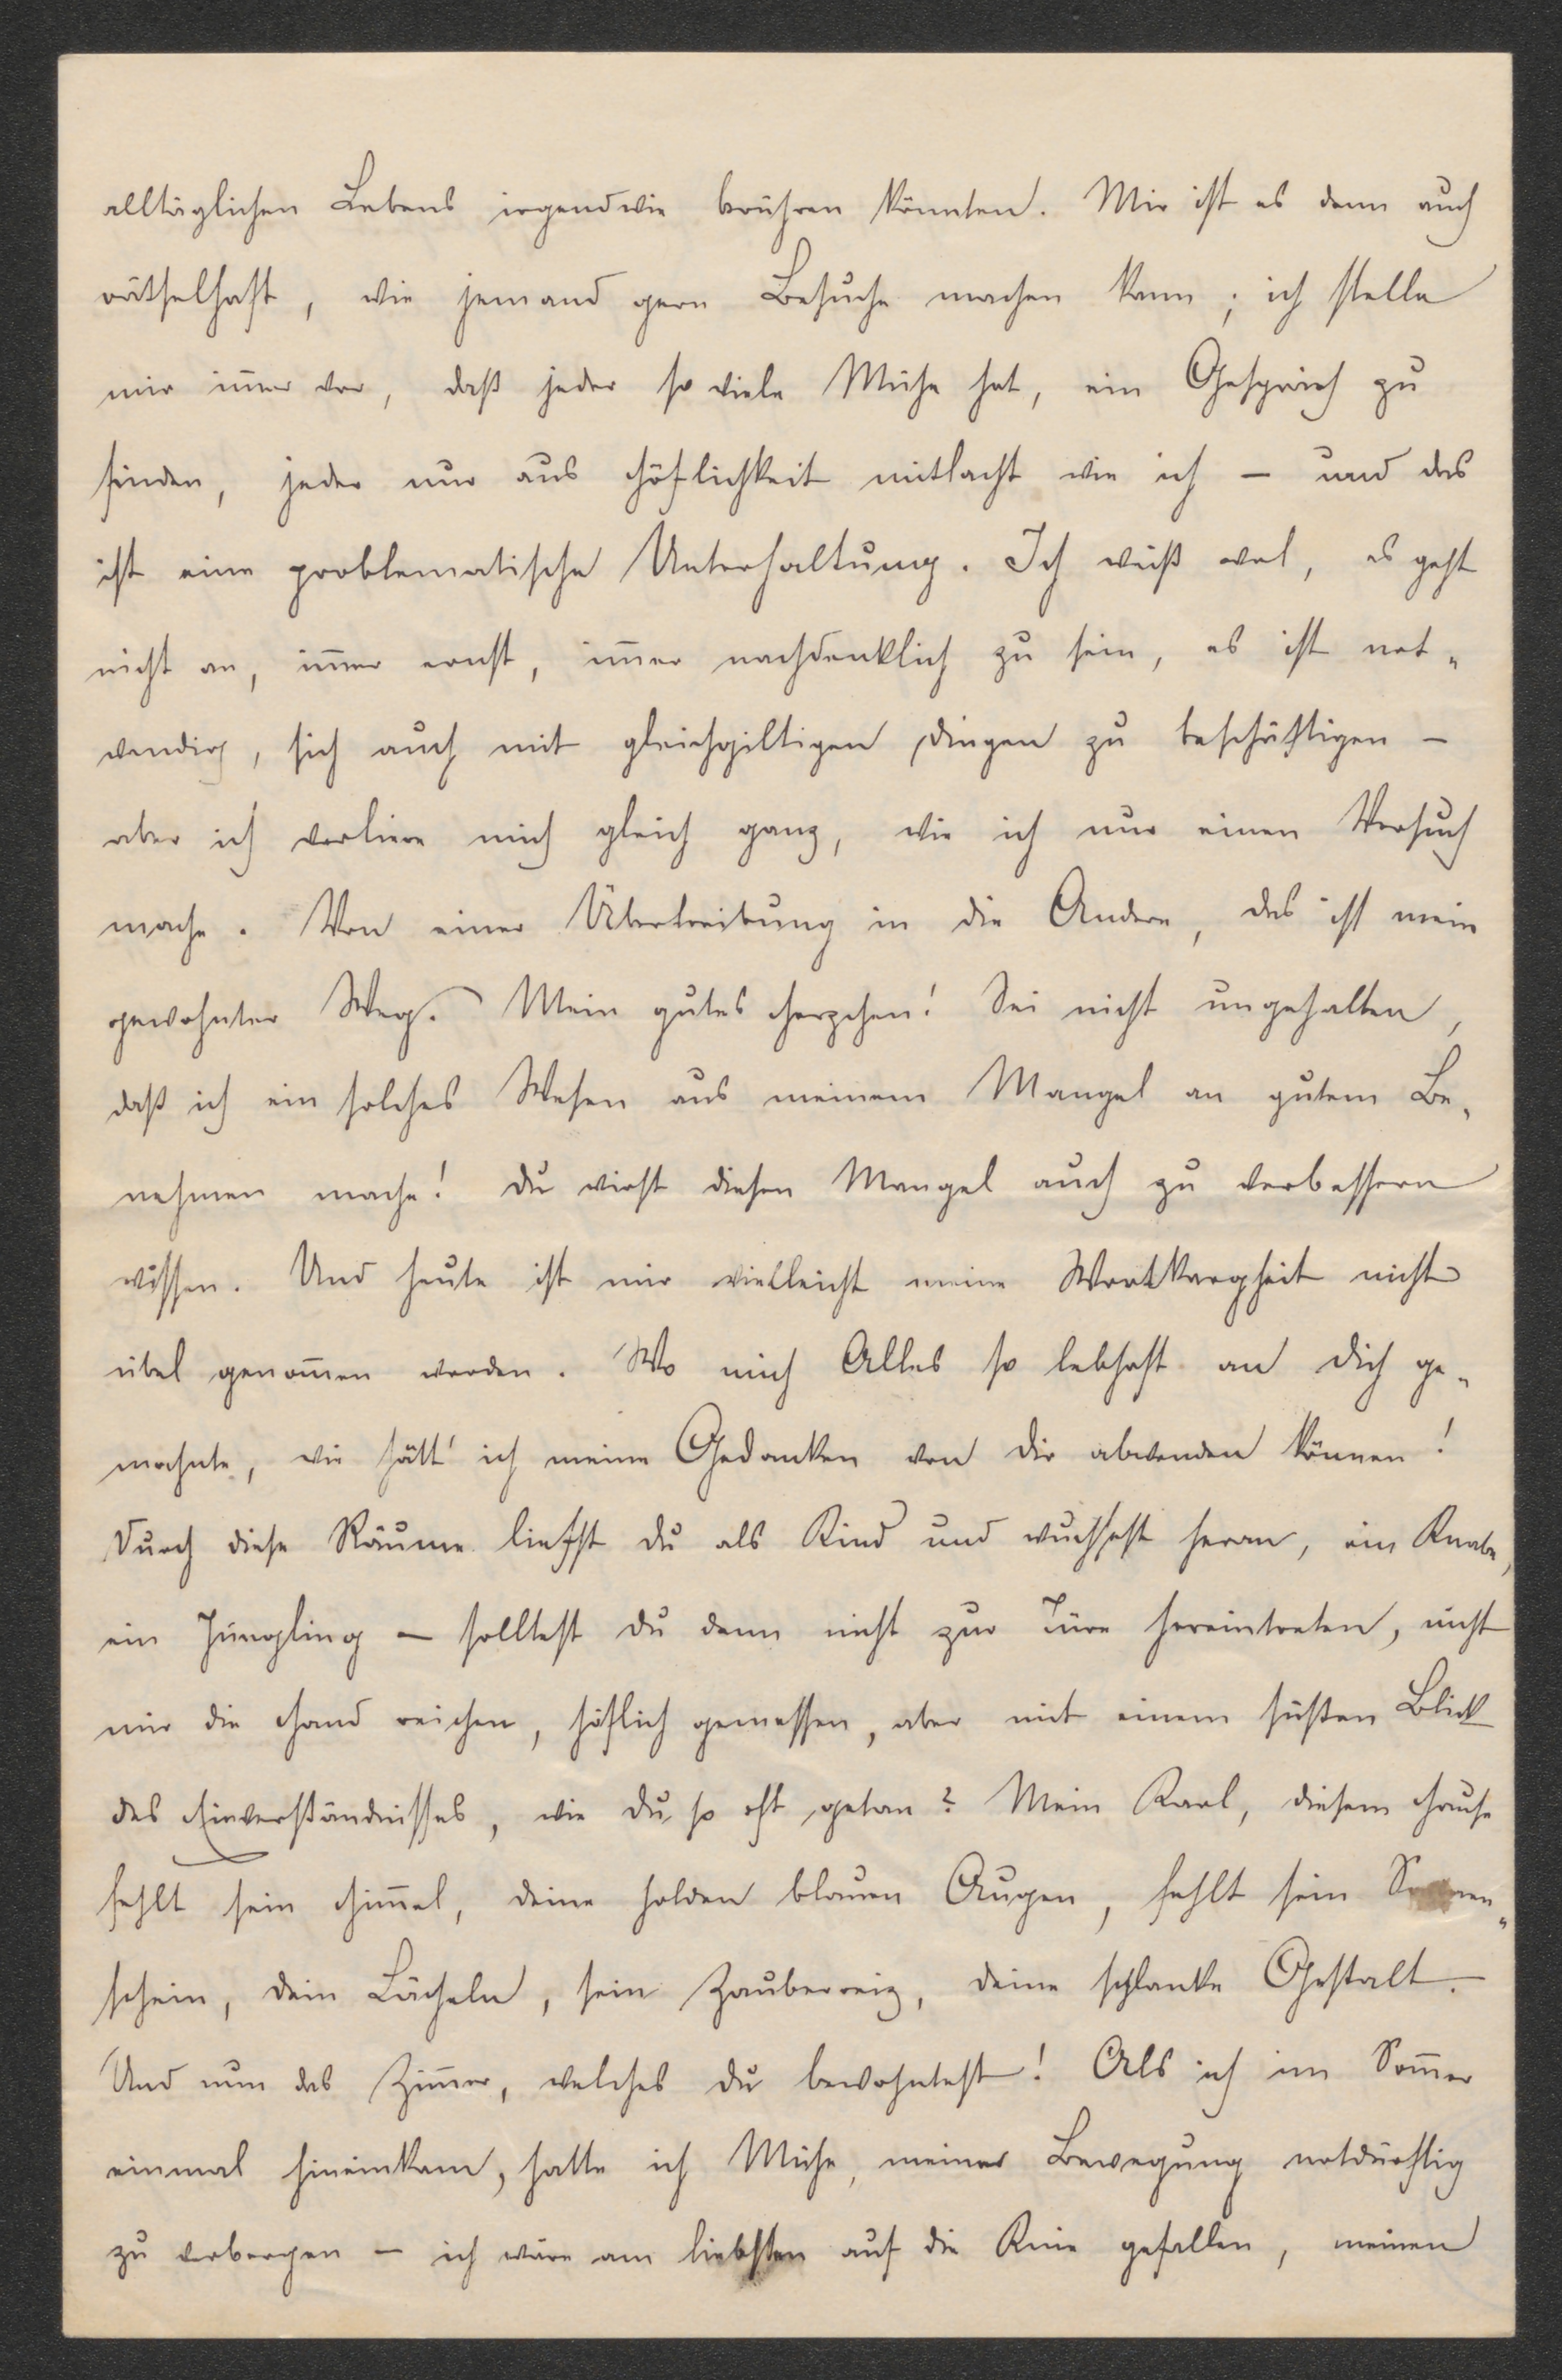 alltäglichen Lebens irgendwie berühren könnten. Mir ist es denn auch
rätselhaft, wie jemand gern Besuche machen kann; ich stelle
mir im̅er vor, daß jeder so viele Mühe hat, ein Gespräch zu
finden, jeder nur aus Höflichkeit mitlacht wie ich – und das
ist eine problematische Unterhaltung. Ich weiß wol, es geht
nicht an, im̅er ernst, im̅er nachdenklich zu sein, es ist not„
wendig, sich auch mit gleichgiltigen Dingen zu beschäftigen –
aber ich verliere mich gleich ganz, wie ich nur einen Versuch
mache. Von einer Übertreibung in die Andere, das ist mein
gewohnter Weg. Mein gutes Herzchen! Sei nicht ungehalten,
daß ich ein solches Wesen aus meinem Mangel an gutem Be„
nehmen mache! Du wirst diesen Mangel auch zu verbessern
wissen. Und heute ist mir vielleicht meine Wortkargheit nicht
übel genom̅en worden. Wo mich Alles so lebhaft an Dich ge„
mahnte, wie hätt' ich meine Gedanken von Dir abwenden können!
Durch diese Räume liefst Du als Kind und wuchsest heran, ein Knabe,
ein Jüngling – solltest Du denn nicht zur Türe hereintreten, nicht
mir die Hand reichen, höflich gemessen, aber mit einem süßen Blick
des Einverständnisses, wie Du so oft getan? Mein Karl, diesem Hause
fehlt sein Him̅el, deine holden blauen Augen, fehlt sein Sonnen„
schein, dein Lächeln, sein Zauberreiz, deine schlanke Gestalt.
Und nun das Zim̅er, welches Du bewohntest! Als ich im Som̅er
einmal hineinkam, hatte ich Mühe, meine Bewegung notdürftig
zu verbergen – ich wäre am liebsten auf die Knie gefallen, meinen